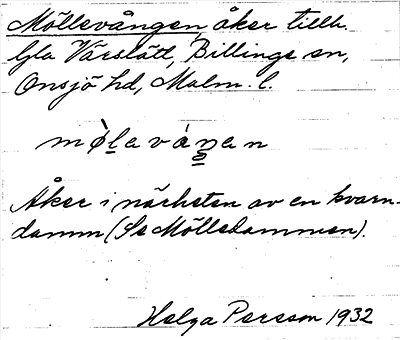 Möllevången, åker tillh.
Gla Värslätt, Billinge sn,
Onsjö hd, Malm. l.
Åker i närheten av en kvarn-
damm (Se Mölledammen).
Helga Persson 1932